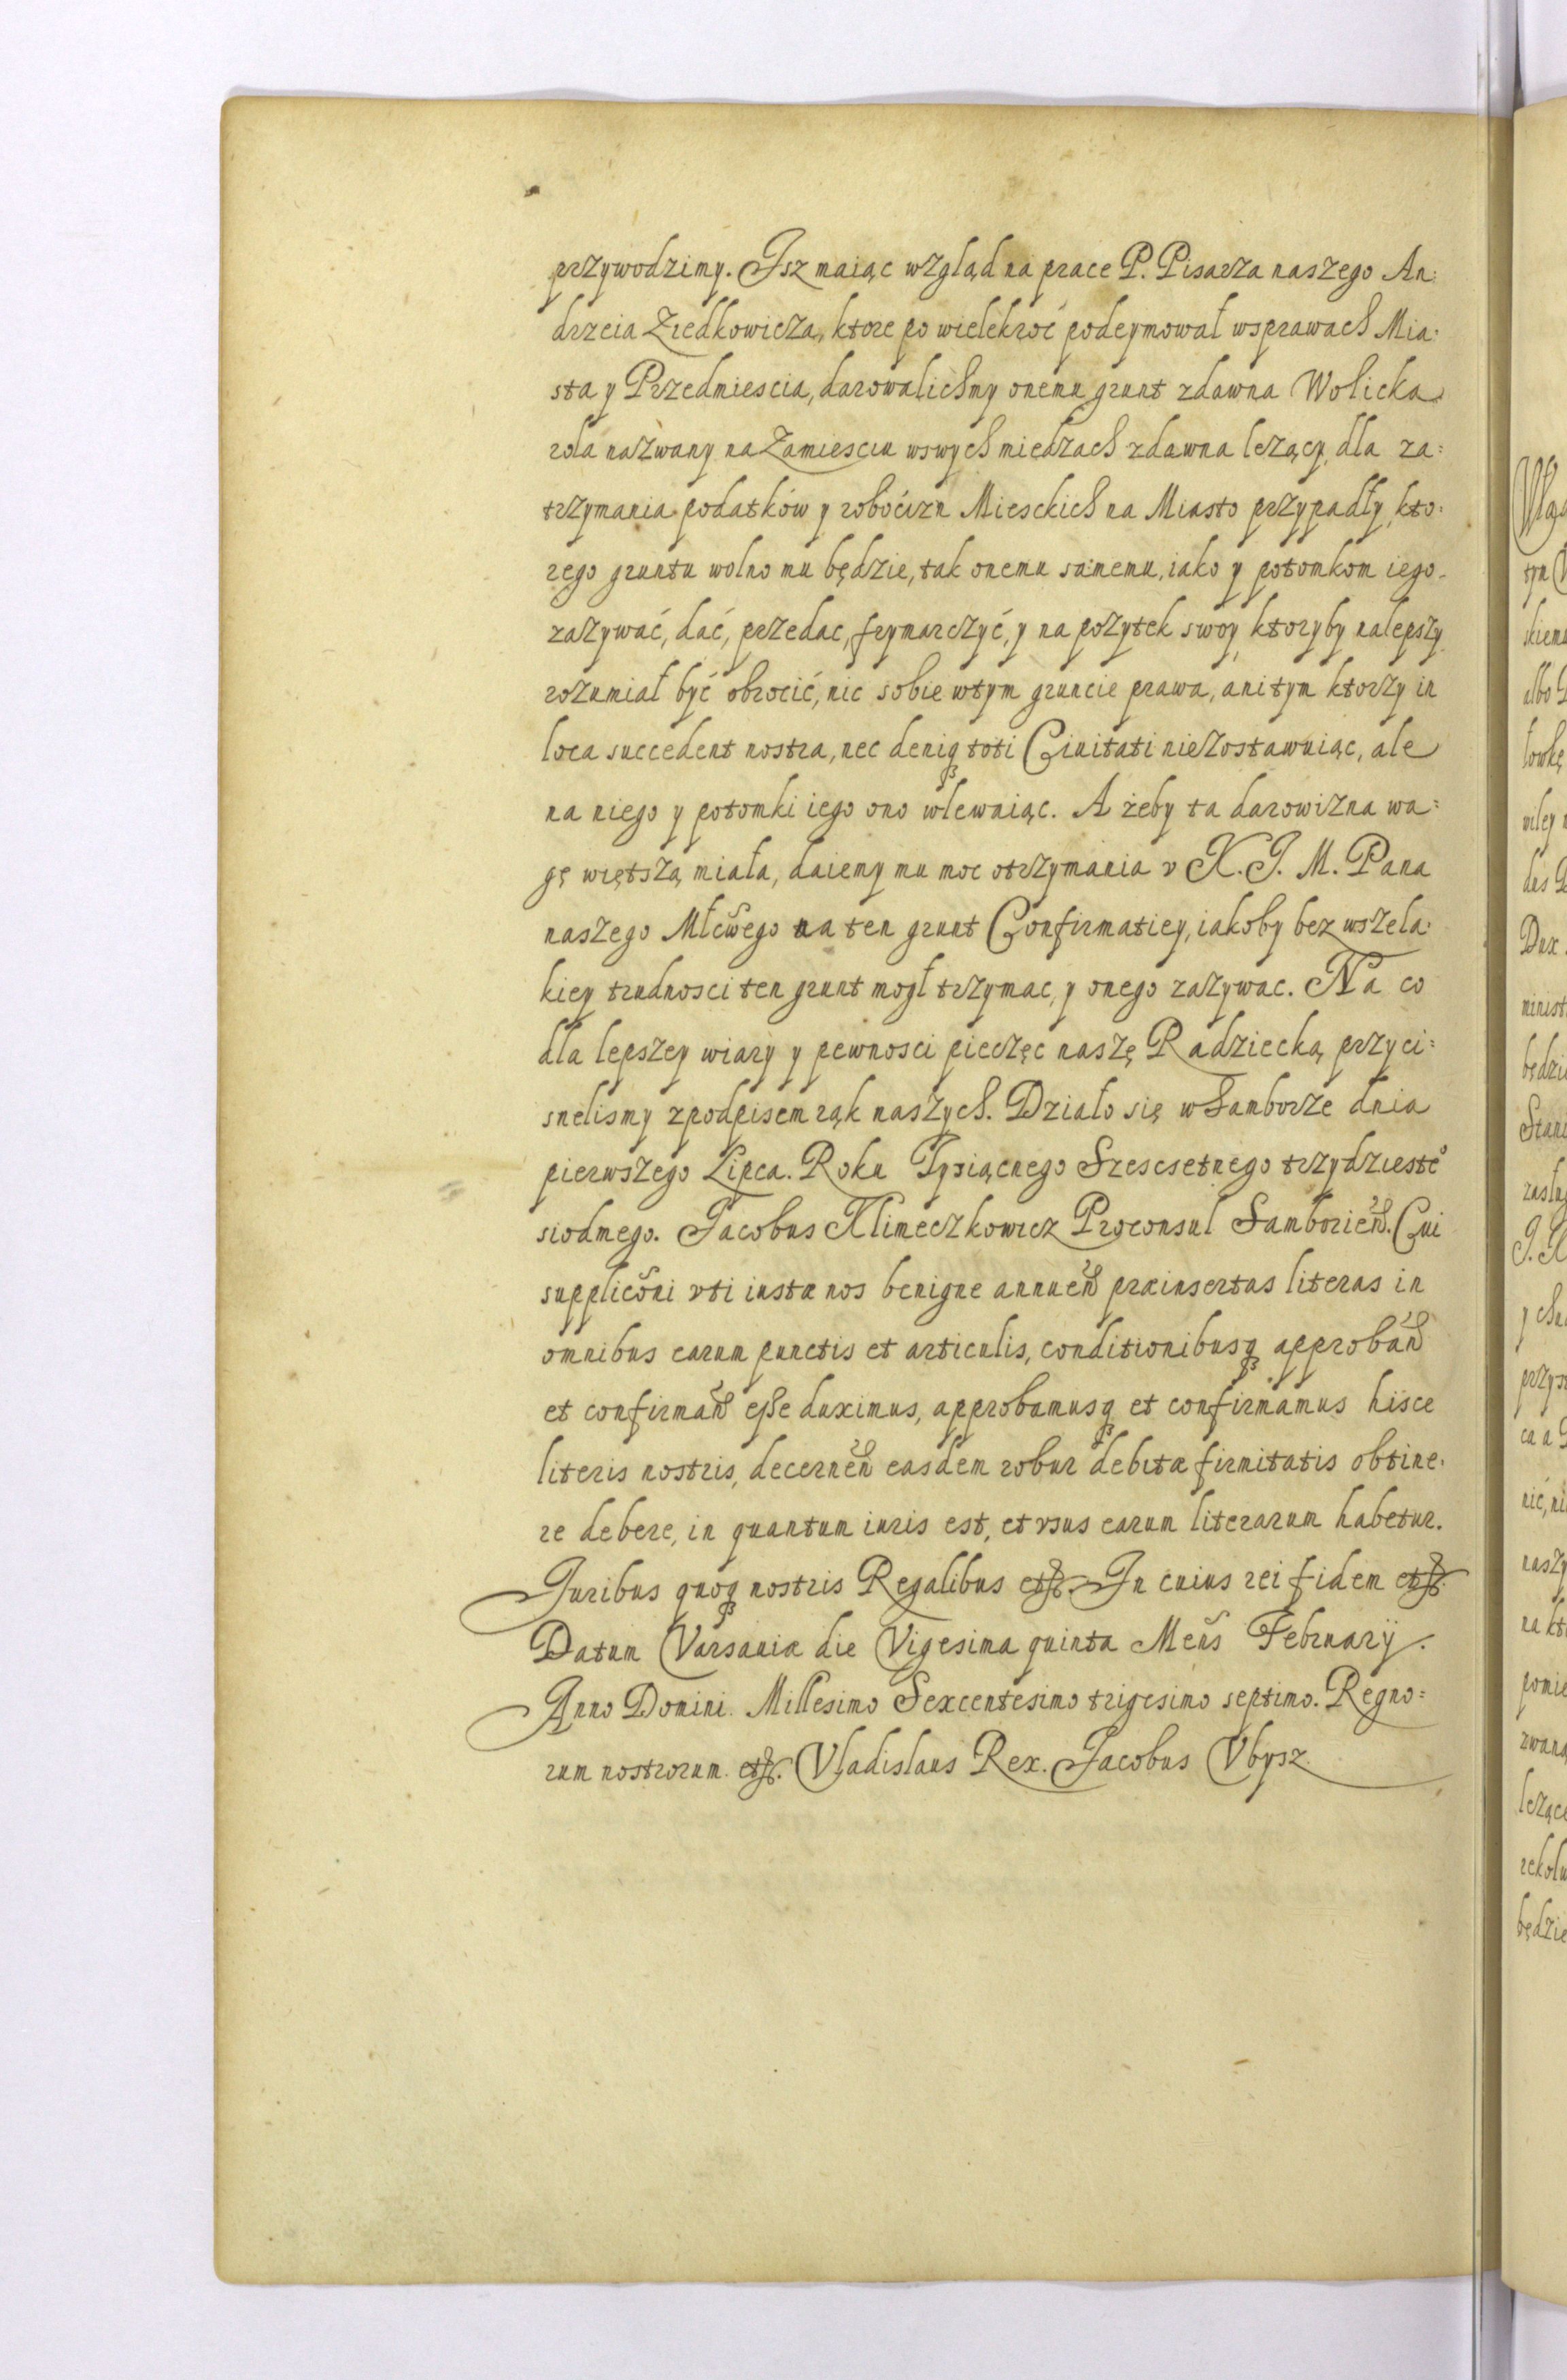 przywodzimy. Isz maiąc wzgląd na prace P. Pisarza naszego An:
drzeia Zredkowicza, ktore po wielekroć podeymował wsprawach Mia:
sta y Przedmiescia, darowalichmy onemu grunt zdawna Wolicka
rola nazwany na Zamiesciu wswych miedzach zdawna lezący, dla za:
trzymania podatków y roboćizn Miesckich na Miasto przypadły, kto:
rego gruntu wolno mu będzie, tak onemu samemu, iako y potomkom iego.
zazywać, dać, przedac, frymarczyć, y na pozytek swoy, ktoryby nalepszy
rozumiał być obrocić, nic sobie wtym gruncie prawa, ani tym ktorzy in
loca succedent nostra, nec deniqꝫ toti Ciuitati niezostawuiąc, ale
na niego y potomki iego ono wlewaiąc. A żeby ta darowizna wa:
gę więtszą miała, daiemy mu moc otrzymania v K. J. M. Pana
naszego Młcwego na ten grunt Confirmatiey, iakoby bez wszela:
kiey trudnosci ten grunt mogł trzymac, y onego zazywac. Na co
dla lepszey wiary y pewnosci pieczęc naszę Radziecką przyci:
snelismy zpodpisem rąk naszych. Działo się w Samborze dnia
pierwszego Lipca. Roku Tysiącnego Szescsetnego trzydziesteº
siodmego. Jacobus Klimeczkowicz Proconsul Samborień. Cui
suppliconi vti iustæ nos benigne annueñ præinsertas literas in
omnibus earum punctis et articulis, conditionibusqꝫ approbañ
et confirmañ esse duximus, approbamusqꝫ et confirmamus hisce
literis nostris, decerneñ easdem robur debitæ firmitatis obtine:
re debere, in quantum iuris est, et vsus earum literarum habetur.
Juribus quoqꝫ nostris Regalibus etc. In cuius rei fidem etc.
Datum Varsauiæ die Vigesima quinta Meñs February.
Anno Domini. Millesimo Sexcentesimo trigesimo septimo. Regno:
rum nostrorum. etc. Vladislaus Rex. Jacobus Vbysz.